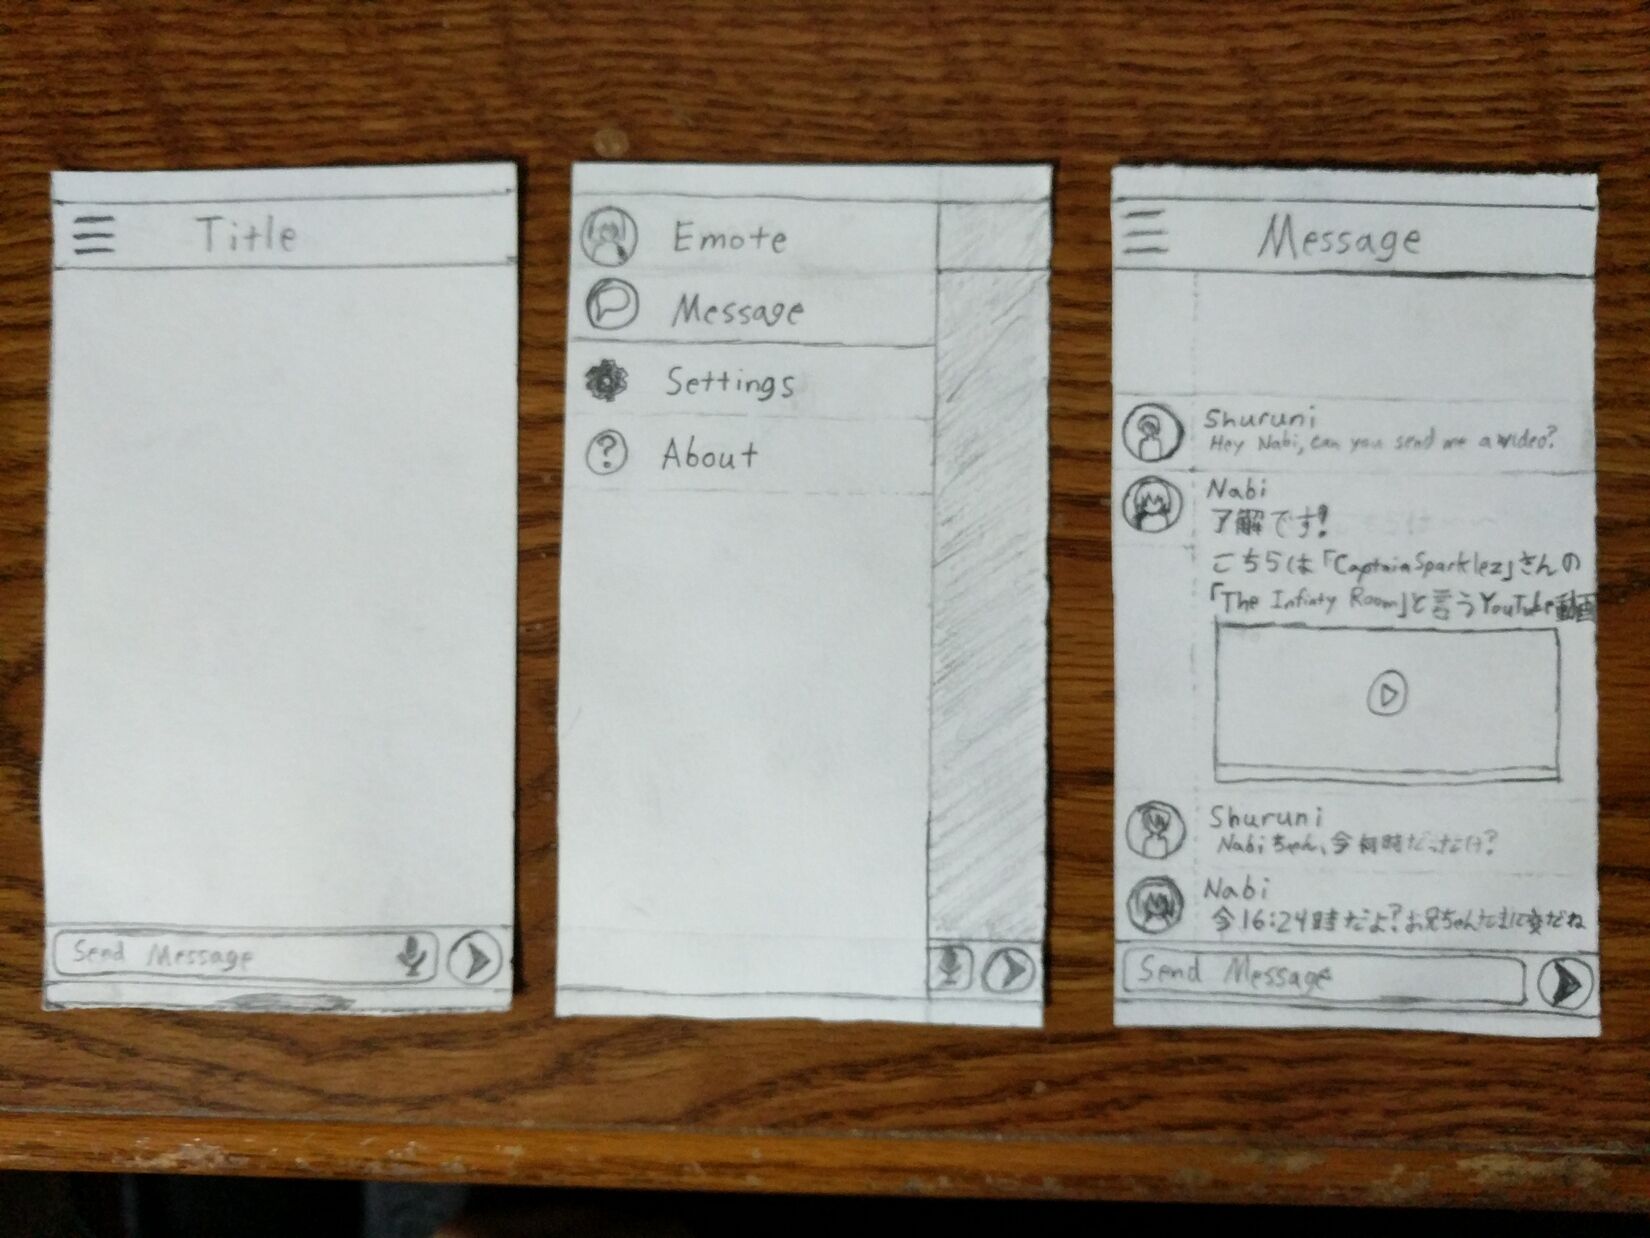 Title
Send Message
Emote
Message
Settings
? About
Message
Shuruni
Hey Nabi, can you send me a video?
Nabi
了解です!
こちらは「CaptainSparklez」さんの
「The Infinty Room」と言うYouTube動画
Shuruni
Nabiちゃん、今何時だったけ?
Nabi
今16:24時だよ?お兄ちゃんたまに変だね
Send Message